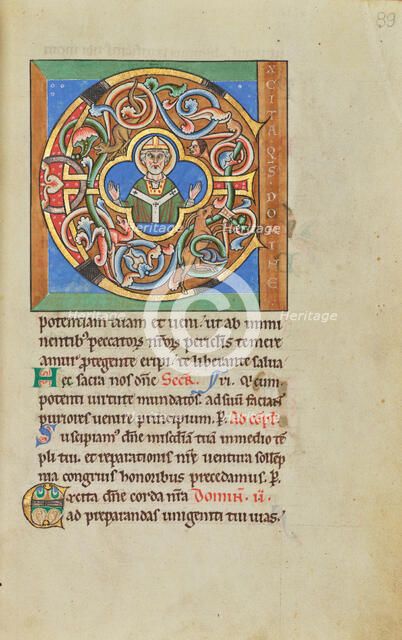 89
XCITA QS DOMINE
potentiam tuam et veni. ut ab immi
nentibus peccatorum nrorum periculis te mere
amur protegente eripi. te liberante salva
Hec sacra nos dne Secr. ri. Q cum
potenti virtute mundatos. ad suum faciant
puriores venire principium. P. Ad cople
Suscipiamus dne misediam tuam in medio te
pli tui. et reparationis nre ventura sollep
nia congruis honoribus precedamus. P.
Excita dne corda nra Domin. ii.
ad preparandas unigeniti tui vias.
Heritage
Heritage
Heritage
Heritage